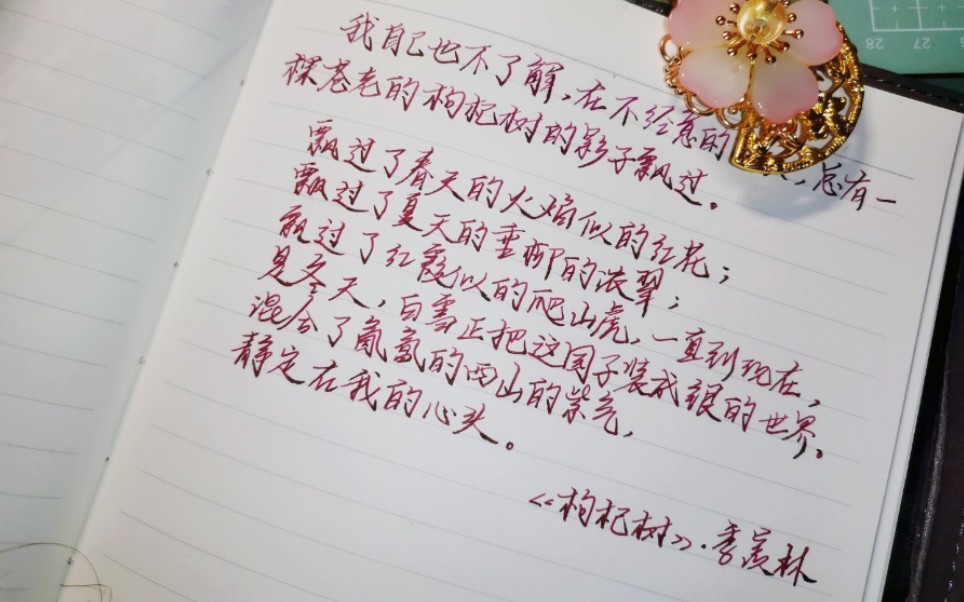 我自己也不了解，在不经意的，总有一
棵苍老的枸杞树的影子飘过。
飘过了春天的火焰似的红花；
飘过了夏天的垂柳的浓翠；
飘过了红霞似的爬山虎，一直到现在，
是冬天，白雪正把这园子装成银的世界。
混合了氤氲的西山的紫气，
静定在我的心头。
《枸杞树》·季羡林
28
26